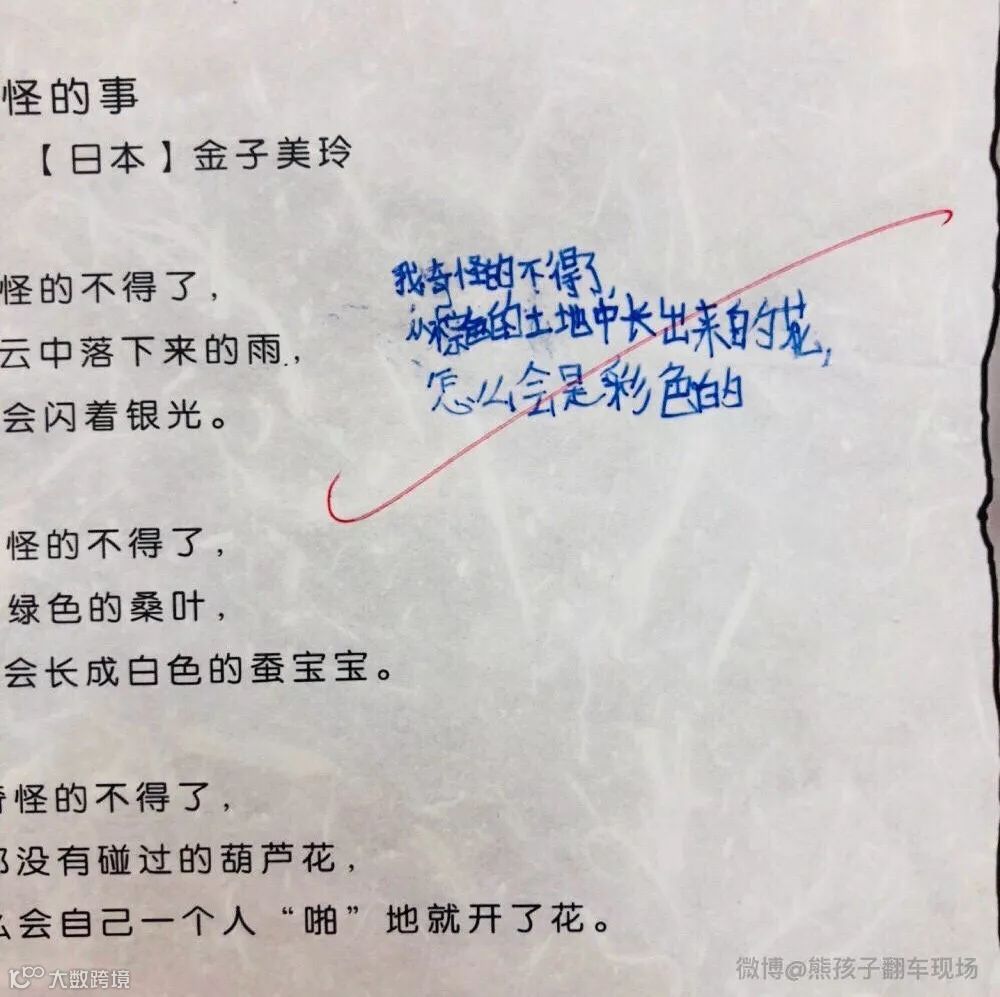 怪的事
【日本】金子美玲
怪的不得了，
云中落下来的雨，
会闪着银光。
我奇怪的不得了，
从棕色的土地中长出来的花，
怎么会是彩色的
怪的不得了，
绿色的桑叶，
会长成白色的蚕宝宝。
奇怪的不得了，
都没有碰过的葫芦花，
么会自己一个人“啪”地就开了花。
大数跨境
微博@熊孩子翻车现场